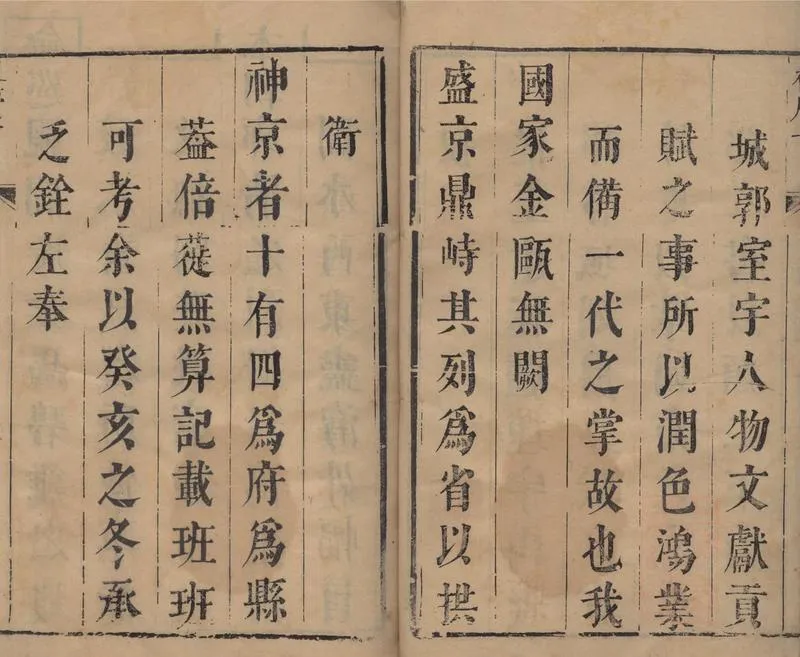 城郭室宇人物文獻貢
賦之事所以潤色鴻業
而備一代之掌故也我
國家金甌無闕
盛京鼎峙其列爲省以拱
衛
神京者十有四爲府爲縣
葢倍蓰無算記載班班
可考余以癸亥之冬承
乏銓左奉